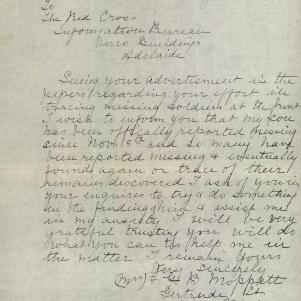 To
The Red Cross
Information Bureau
Verco Buildings
Adelaide
Seeing your advertisment in the
papers regarding your effort in
tracing missing soldiers at the front
I wish to inform you that my son
has been offically reported missing
since Nov 5th and so many have
been reported missing & eventually
found again or trace of their
remains discovered I ask of you in
your enquires to try & do something
in the finding of him & assist me
in my anxiety I will be very
grateful trusting you will do
what you can to help me in
the matter I remain yours
Very Sincerely
(Mrs) F H B Moppett
Gertrude St